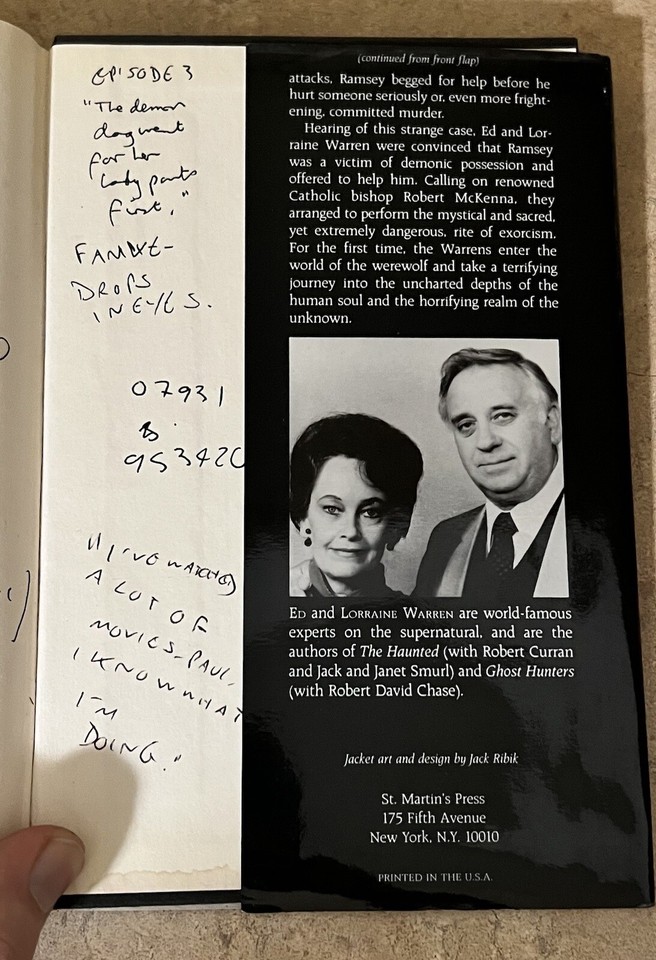 EPISODE 3
"The demon
dog went
for her
lady parts
first."
DROPS
IN EYES.
07931
953420
"I'VE WATCHED
A LOT OF
MOVIES, PAUL,
I KNOW WHAT
I'M
DOING."
(continued from front flap)
attacks, Ramsey begged for help before he
hurt someone seriously or, even more fright-
ening, committed murder.
Hearing of this strange case, Ed and Lor-
raine Warren were convinced that Ramsey
was a victim of demonic possession and
offered to help him. Calling on renowned
Catholic bishop Robert McKenna, they
arranged to perform the mystical and sacred,
yet extremely dangerous, rite of exorcism.
For the first time, the Warrens enter the
world of the werewolf and take a terrifying
journey into the uncharted depths of the
human soul and the horrifying realm of the
unknown.
ED and LORRAINE WARREN are world-famous
experts on the supernatural, and are the
authors of The Haunted (with Robert Curran
and Jack and Janet Smurl) and Ghost Hunters
(with Robert David Chase).
Jacket art and design by Jack Ribik
St. Martin's Press
175 Fifth Avenue
New York, N.Y. 10010
PRINTED IN THE U.S.A.